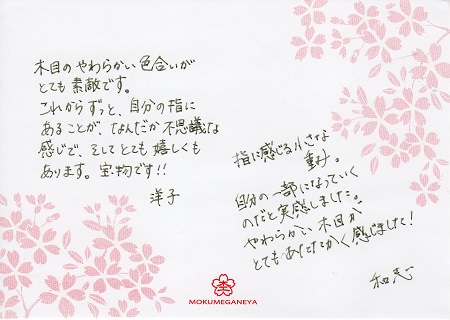 木目のやわらかい色合いが
とても素敵です。
これからずっと、自分の指に
あることが、なんだか不思議な
感じで、そしてとても嬉しくも
あります。宝物です!!
洋子
指に感じる小さな
重み。
自分の一部になっていく
のだと実感しました。
やわらかい木目が
とてもあたたかく感じました!
和志
MOKUMEGANEYA